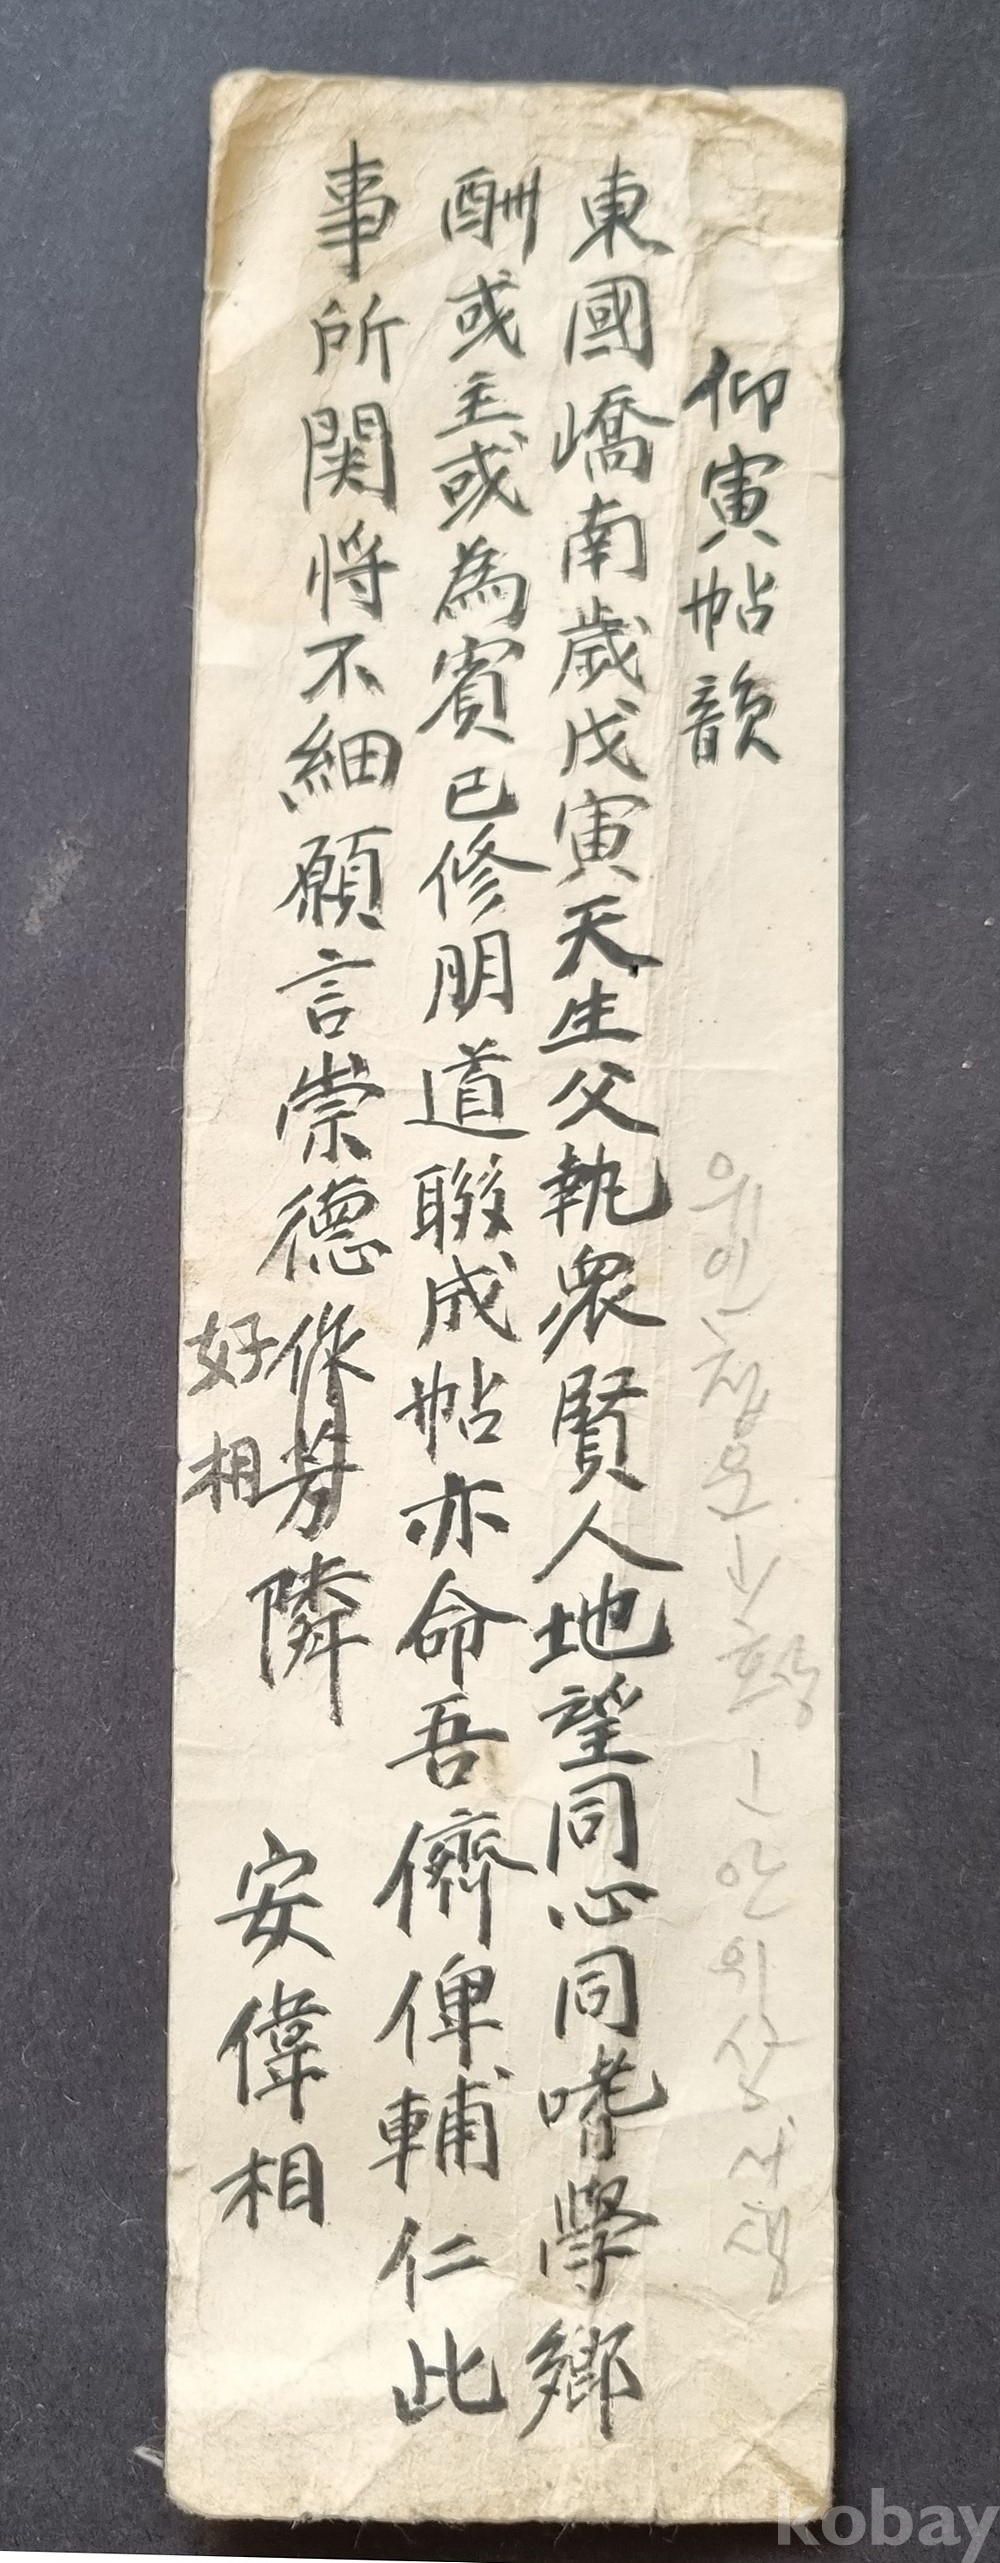 仰寅帖韻
東國嶠南歲戊寅天生父執衆賢人地望同心同嗜學鄉
酬或主或為賓已修朋道聯成帖亦命吾儕俾輔仁此
事所関将不細願言崇德作芳隣
好相
安偉相
kobay